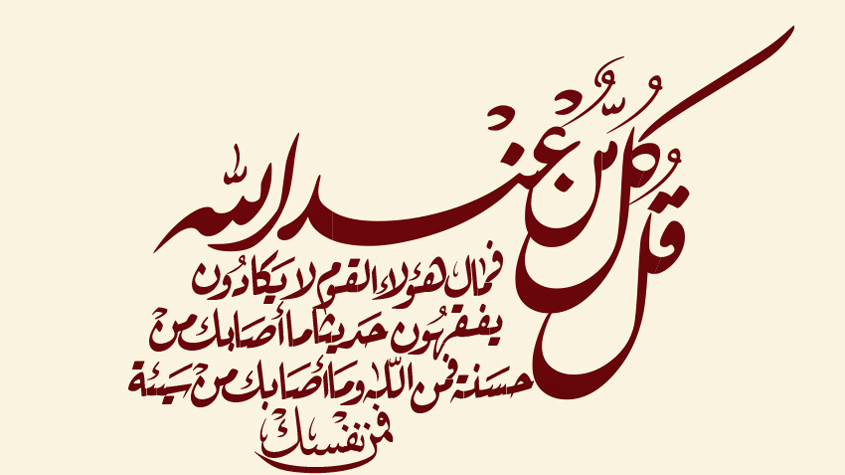 قُلْ كُلٌّ مِّنْ عِنْدِ اللّٰه
فمال هؤلاء القوم لا يَكادُون
يفقهُون حَديثا ما أصَابك منْ
حسَنة فمن اللّٰه ومَا أصَابك منْ سَيئة
فمن نفْسكْ